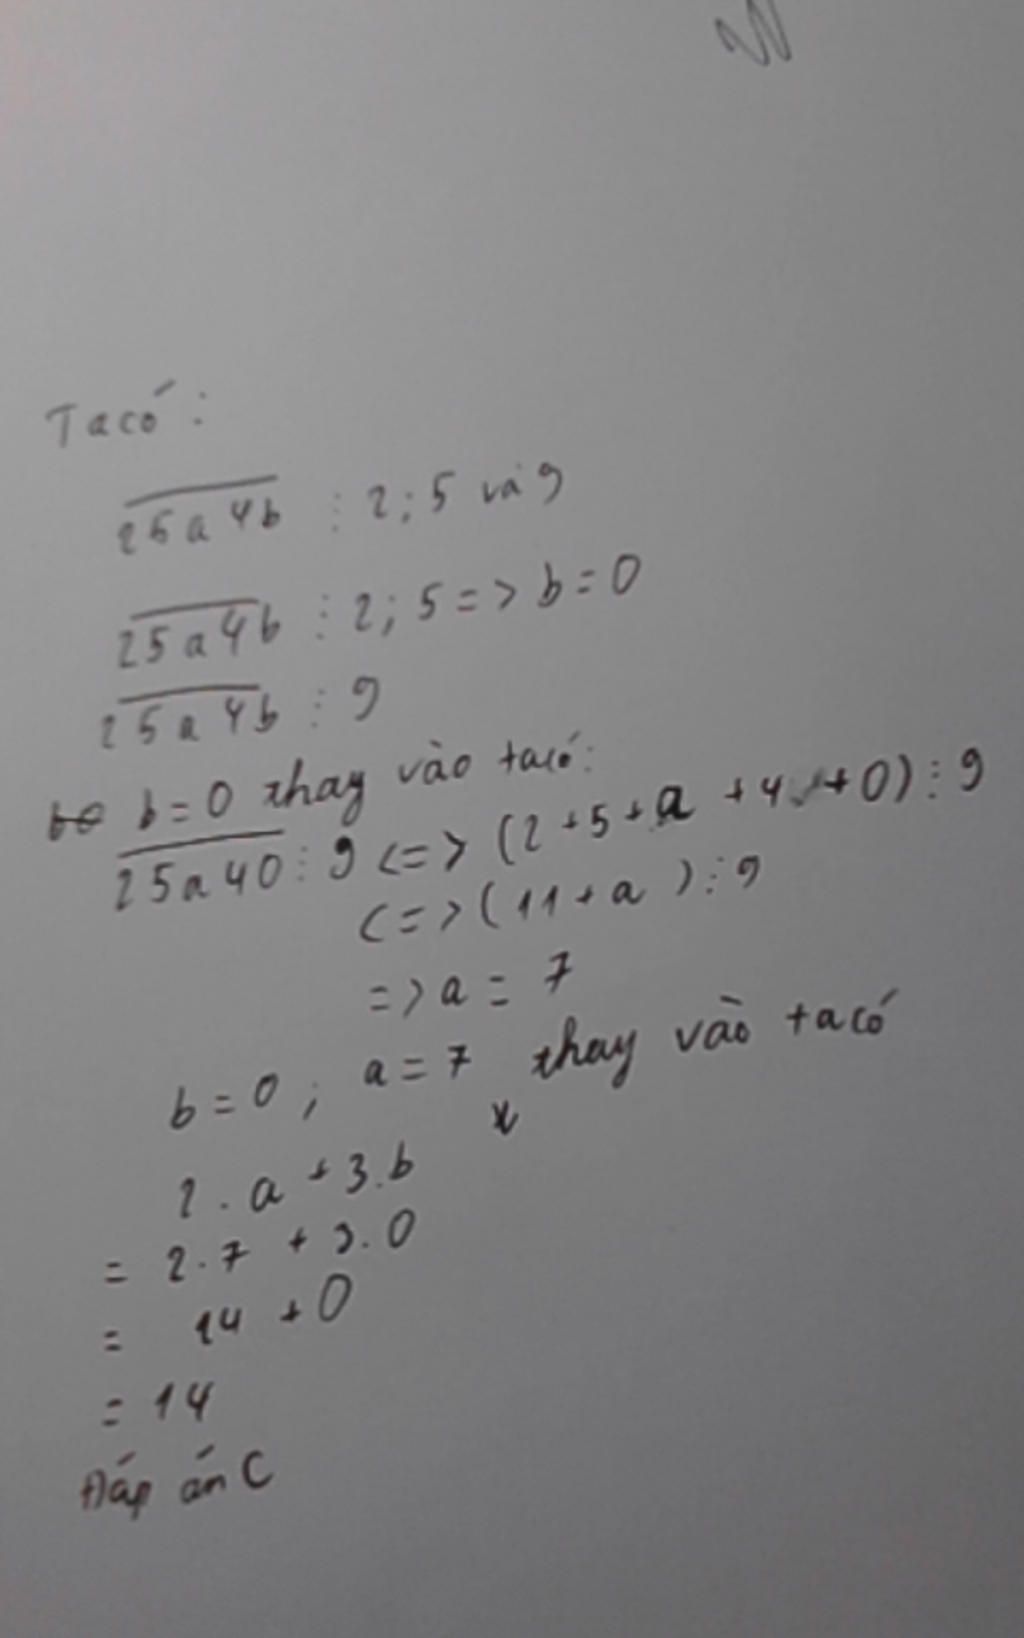 Ta có:
25a4b ⋮ 2; 5 và 9
25a4b ⋮ 2; 5 => b = 0
25a4b ⋮ 9
b = 0 thay vào ta có:
25a40 ⋮ 9 <=> (2 + 5 + a + 4 + 0) ⋮ 9
<=> (11 + a) ⋮ 9
=> a = 7
b = 0; a = 7 thay vào ta có
2 . a + 3.b
= 2.7 + 3.0
= 14 + 0
= 14
Đáp án C